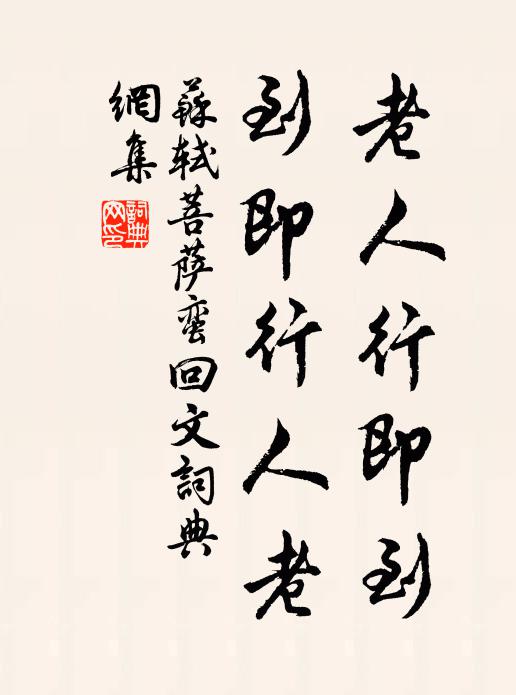 老人行即到
到即行人老
蘇軾菩薩蠻回文詞典
網集
詞典
网印